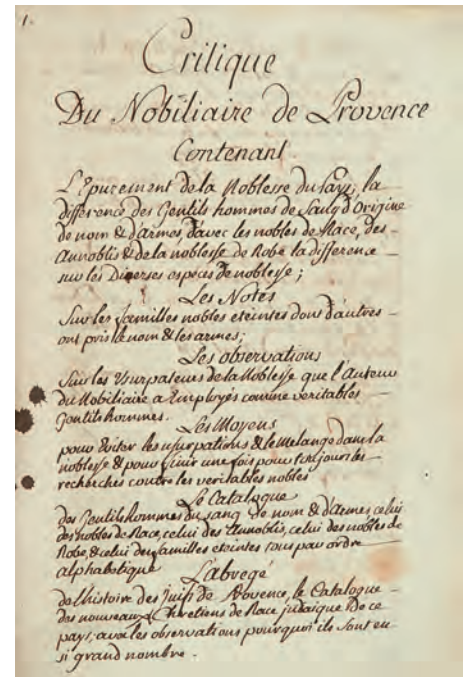 1.
Critique
Du Nobiliaire de Provence
Contenant
L'Epurement de la Noblesse du Pays; la
difference des Gentils hommes de Sang d'Origine
de nom & d'armes, d'avec les nobles de Race, des
Annoblis & de la noblesse de Robe la difference
sur les Diverses especes de noblesse;
Les Notes
Sur les familles nobles eteintes dont d'autres
ont pris le nom & les armes;
Les observations
Sur les Usurpateurs de la Noblesse que l'Auteur
du Nobiliaire a Employés comme veritables
Gentils hommes.
Les Moyens
pour Eviter les usurpations & le melange dans la
noblesse & pour finir une fois pour toujours les
recherches contre les veritables nobles
Le Catalogue
des Gentils hommes du sang de nom & d'Armes, celui
des nobles de Race, celui des Annoblis, celui des nobles de
Robe, & celui des familles eteintes tous par ordre
alphabetique
L'abregé
de l'histoire des juifs de Provence, le Catalogue
des nouveaux Chretiens de Race judaique de ce
pays, avec les observations pourquoi ils sont en
si grand nombre.